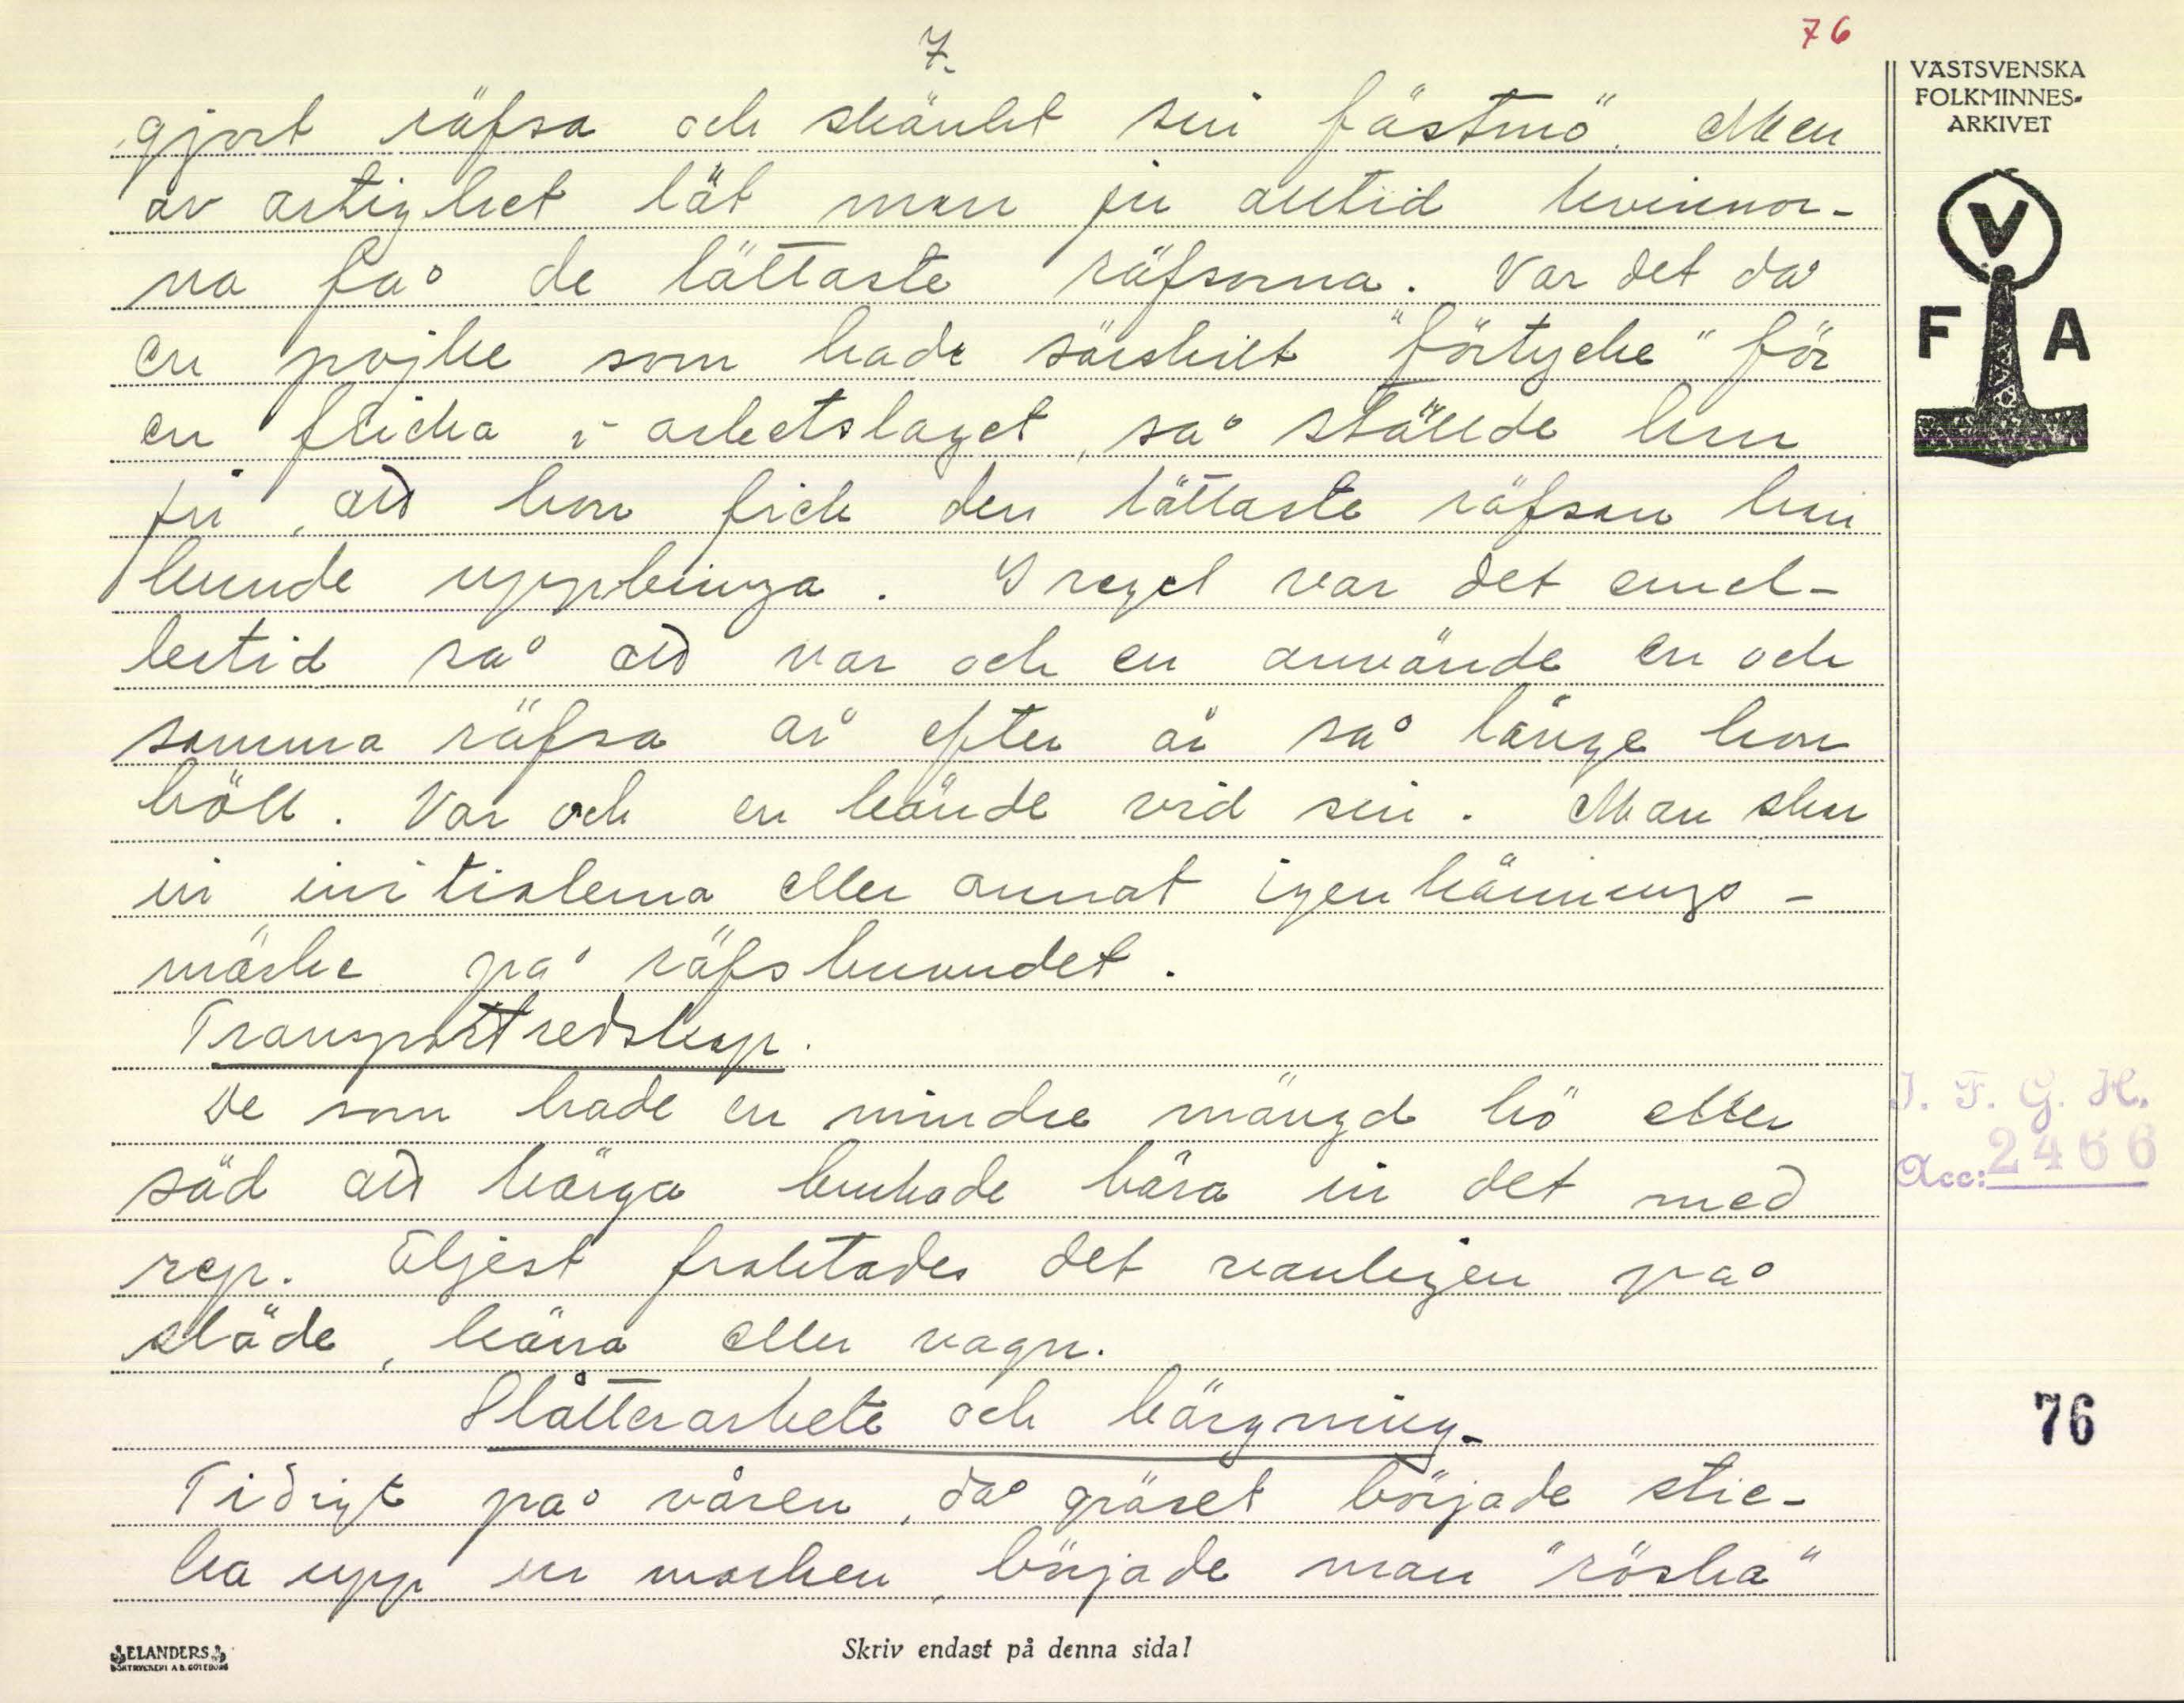 7.
76
gjort räfsa och skänkt sin fästmö. Men
av artighet lät man ju alltid kvinnor-
na få de lättaste räfsorna. Var det då
en pojke som hade särskilt "förtycke" för
en flicka i arbetslaget, så ställde han
ju, att hon fick den lättaste räfsan han
kunde uppbringa. I regel var det emel-
lertid så att var och en använde en och
samma räfsa år efter år så länge hon
höll. Var och en kände vid sin. Man skar
in initialerna eller annat igenkännings-
märke på räfshuvudet.
Transportredskap.
De som hade en mindre mängd hö eller
säd att bärga brukade bära in det med
rep. Eljest fraktades det vanligen på
släde, kärra eller vagn.
Slåtterarbete och bärgning.
Tidigt på våren, då gräset började stic-
ka upp ur marken, började man "röska"
VÄSTSVENSKA
FOLKMINNES-
ARKIVET
V
F A
I. F. G. H.
Acc: 2466
76
ELANDERS
BOKTRYCKERI A.B. GÖTEBORG
Skriv endast på denna sida!